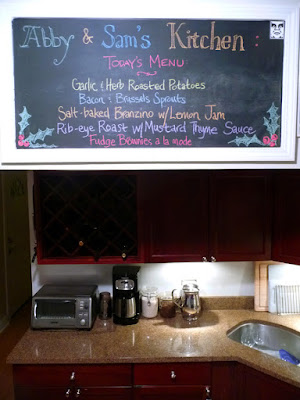 Abby & Sam's Kitchen :
Today's Menu
Garlic & Herb Roasted Potatoes
Bacon & Brussels Sprouts
Salt-baked Branzino w/Lemon Jam
Rib-eye Roast w/ Mustard Thyme Sauce
Fudge Brownies à la mode